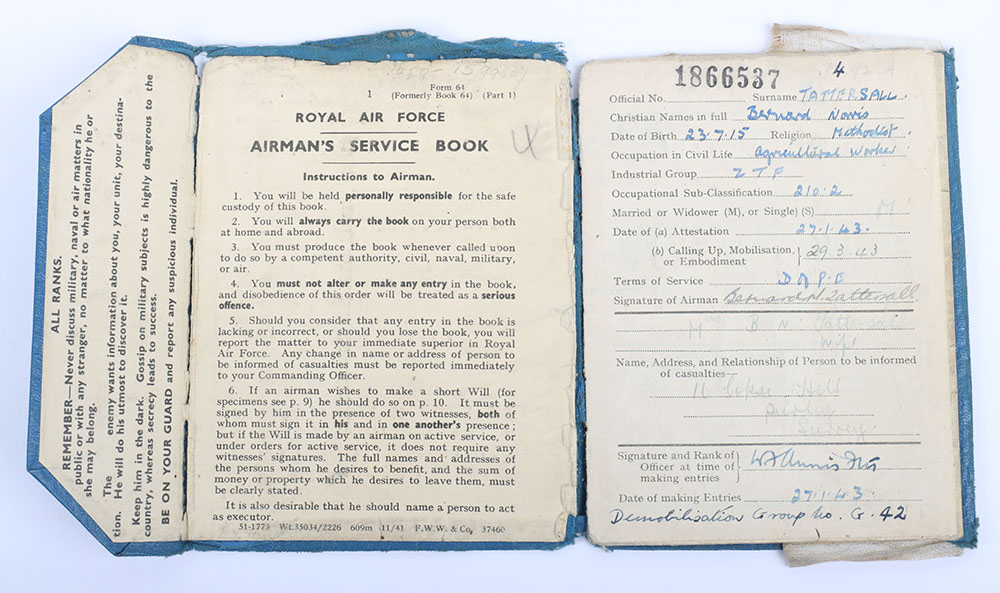 ALL RANKS.
REMEMBER—Never discuss military, naval or air matters in
public or with any stranger, no matter to what nationality he or
she may belong.
The enemy wants information about you, your unit, your destina-
tion. He will do his utmost to discover it.
Keep him in the dark. Gossip on military subjects is highly dangerous to the
country, whereas secrecy leads to success.
BE ON YOUR GUARD and report any suspicious individual.
Form 64
1 (Formerly Book 64) (Part 1)
ROYAL AIR FORCE
AIRMAN'S SERVICE BOOK
Instructions to Airman.
1. You will be held personally responsible for the safe
custody of this book.
2. You will always carry the book on your person both
at home and abroad.
3. You must produce the book whenever called upon
to do so by a competent authority, civil, naval, military,
or air.
4. You must not alter or make any entry in the book,
and disobedience of this order will be treated as a serious
offence.
5. Should you consider that any entry in the book is
lacking or incorrect, or should you lose the book, you will
report the matter to your immediate superior in Royal
Air Force. Any change in name or address of person to
be informed of casualties must be reported immediately
to your Commanding Officer.
6. If an airman wishes to make a short Will (for
specimens see p. 9) he should do so on p. 10. It must be
signed by him in the presence of two witnesses, both of
whom must sign it in his and in one another's presence;
but if the Will is made by an airman on active service, or
under orders for active service, it does not require any
witnesses' signatures. The full names and addresses of
the persons whom he desires to benefit, and the sum of
money or property which he desires to leave them, must
be clearly stated.
It is also desirable that he should name a person to act
as executor.
51-1773 Wt.35034/2226 609m 11/41 F.W.W. & Co. 37460
1866537 4
Official No. Surname TATTERSALL.
Christian Names in full Bernard Norris
Date of Birth 23.7.15 Religion Methodist.
Occupation in Civil Life Agricultural Worker
Industrial Group Z T F
Occupational Sub-Classification 210.2
Married or Widower (M), or Single) (S) M
Date of (a) Attestation 27.1.43.
(b) Calling Up, Mobilisation, or Embodiment } 29.3.43
Terms of Service D.O.P.E
Signature of Airman Bernard N. Tattersall
Wife
Name, Address, and Relationship of Person to be informed
of casualties—
Hill
Surrey
Signature and Rank of
Officer at time of
making entries }
Date of making Entries 27.1.43.
Demobilisation Group No. G. 42